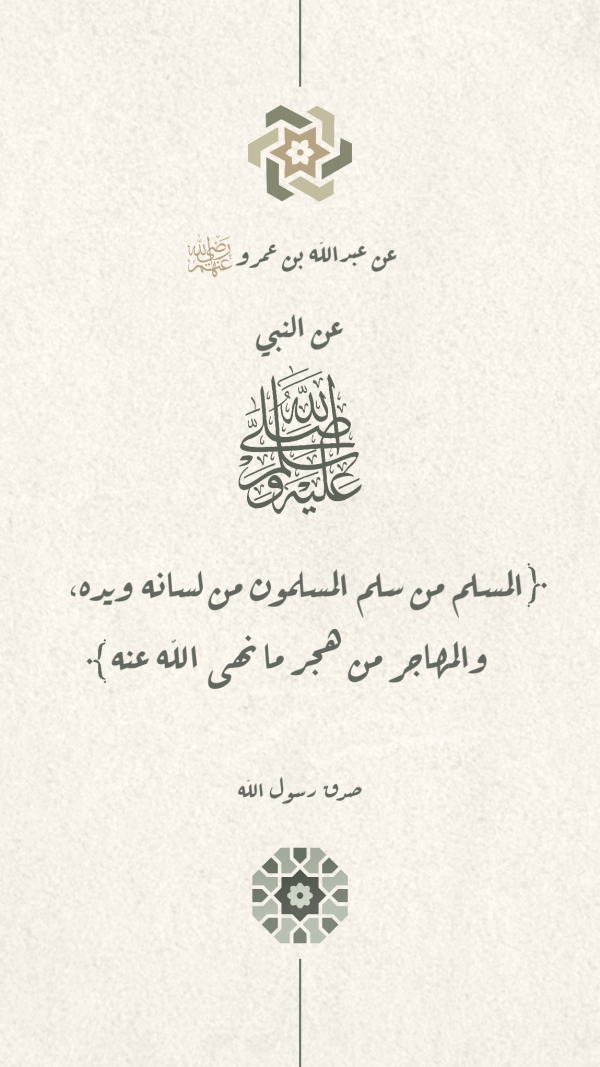 عن عبدالله بن عمرو رضي الله عنهم
عن النبي
صلى الله عليه وسلم
{المسلم من سلم المسلمون من لسانه ويده،
والمهاجر من هجر ما نهى الله عنه}
صدق رسول الله